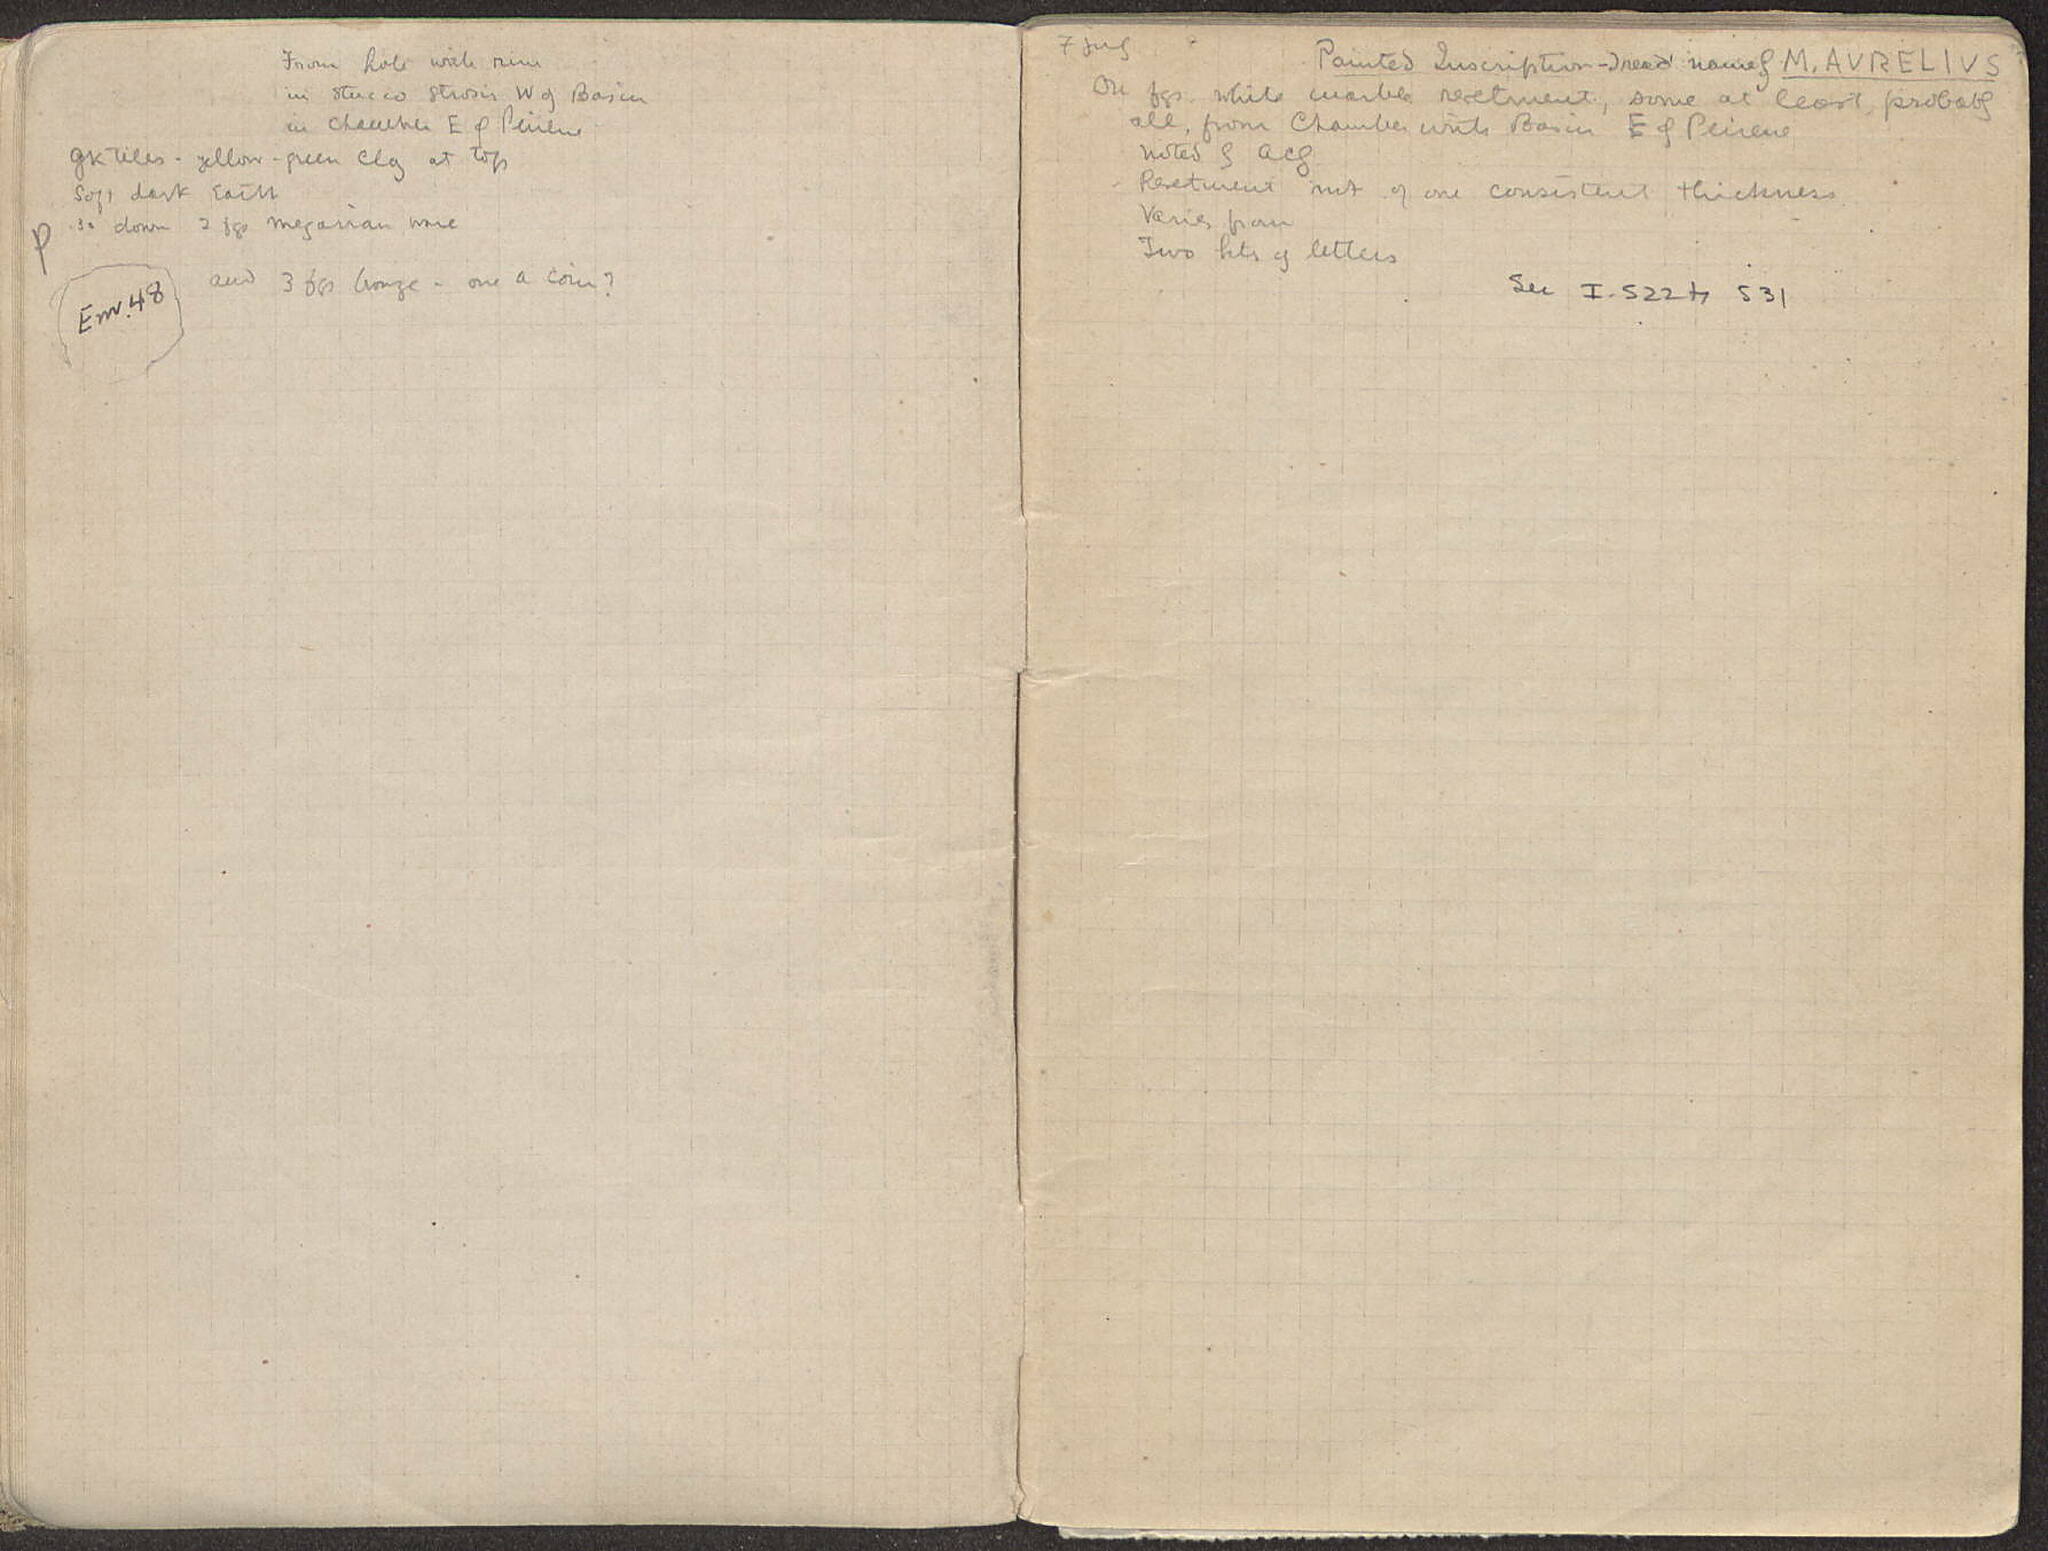 From hole with rim
in stucco strosis W of Basin
in chamber E of Peirene
gk tiles - yellow-green clay at top
Soft dark Earth
.30 down 2 fgs megarian ware
P
and 3 fgs bronze - one a coin?
Env. 48
7 July
Painted Inscription - I read name of M. AVRELIVS
On fgs. white marble revetment, some at least, probably
all, from Chamber with Basin E of Peirene
noted by
Revetment not of one consistent thickness
Varies from
Two hts of letters
See I-522 to 531